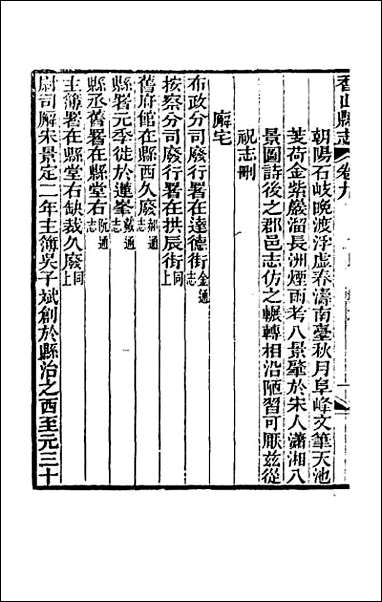 香山縣志 卷九
朝陽石岐晚波浮虛春濤南臺秋月阜峰文筆天池
芰荷金紫嚴溜長洲煙雨考八景肇於宋人瀟湘八
景圖詩後之郡邑志仿之輾轉相沿陋習可厭茲從
祝志刪
廨宅
布政分司廢行署在達德街金通志
按察分司廢行署在拱辰街同上
舊府館在縣西久廢郝通志
縣署元季徙於蓮峯戴通志
縣丞舊署在縣堂右阮通志
主簿署在縣堂右缺裁久廢同上
尉司廨宋景定二年主簿吳子斌創於縣治之西至元三十